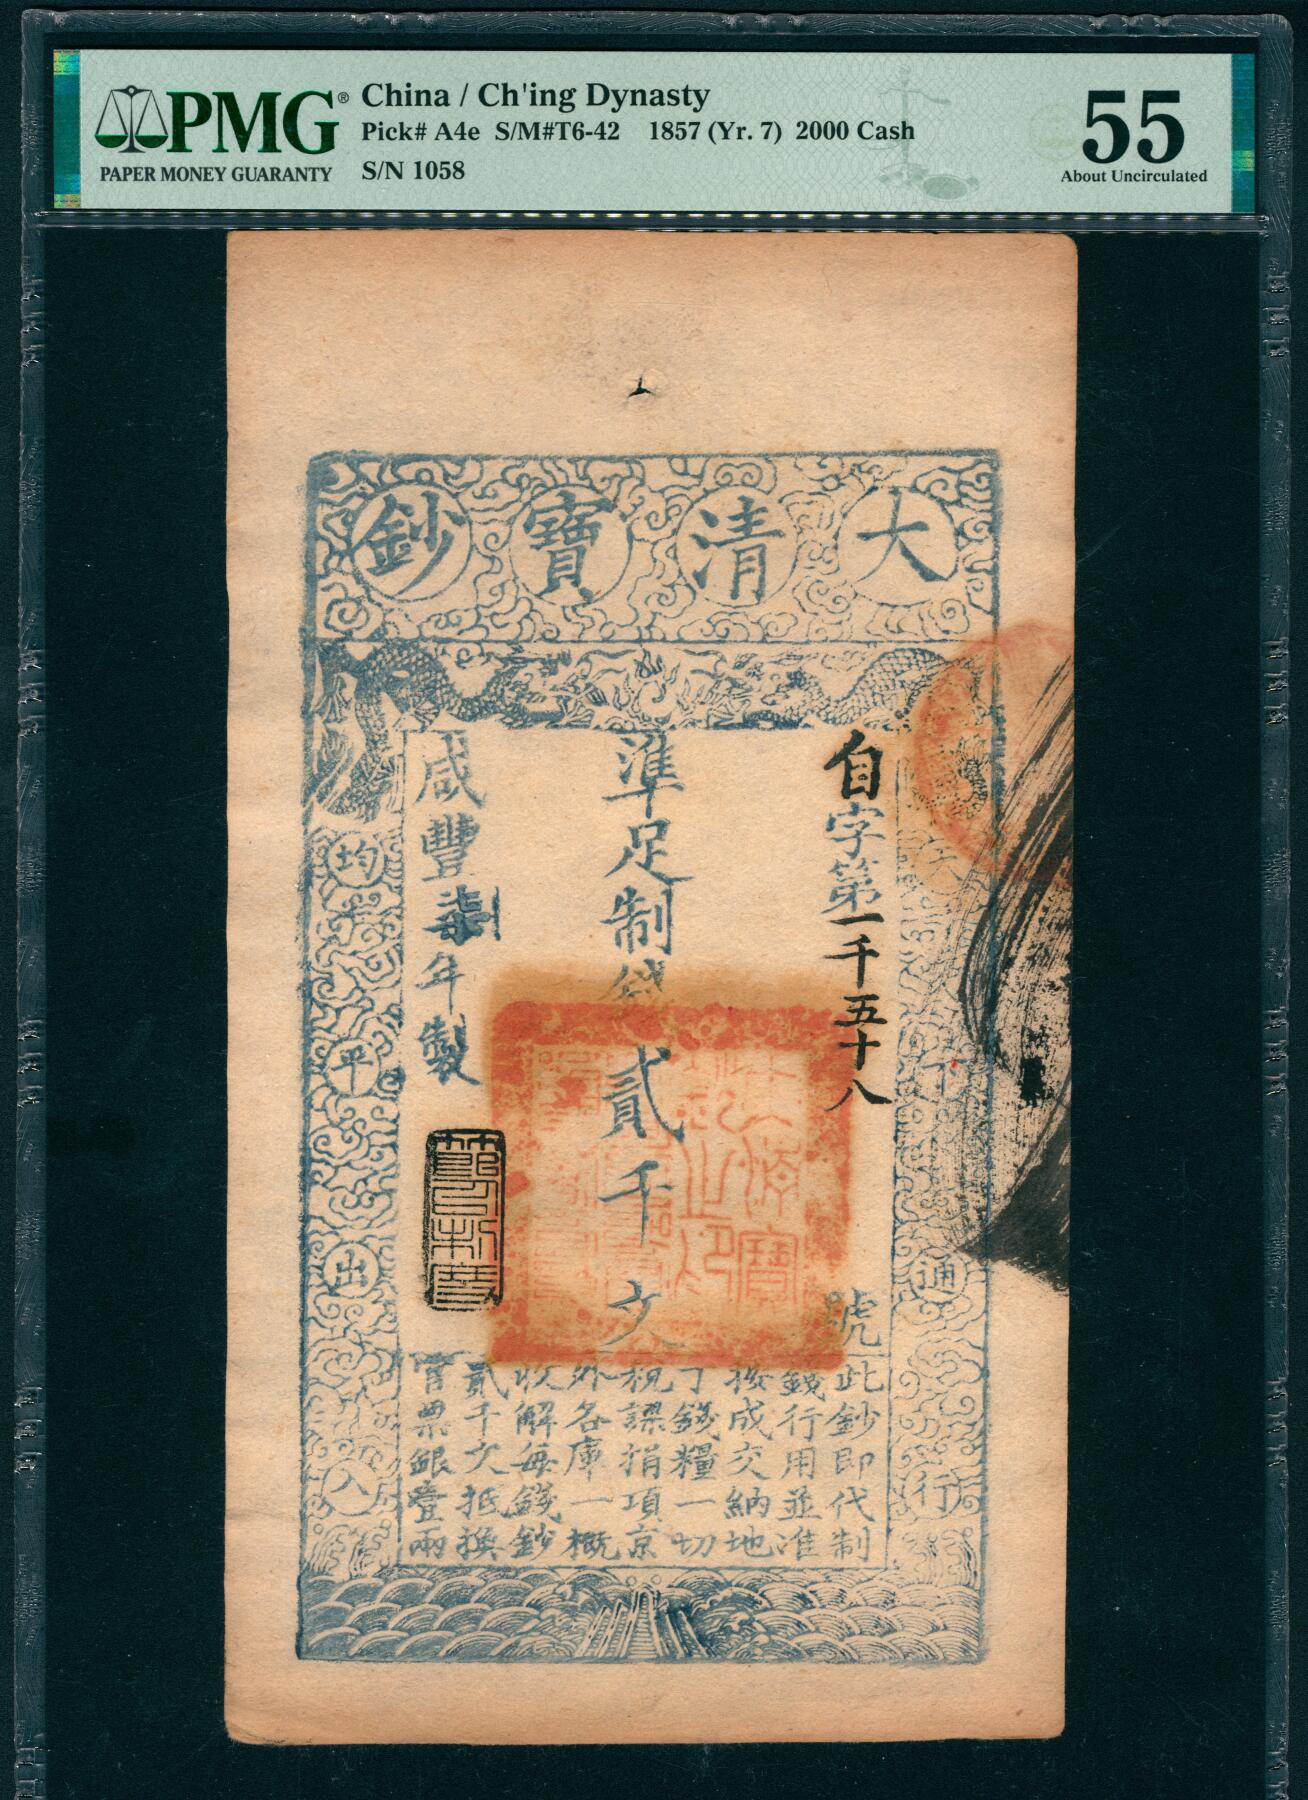 PMG®
PAPER MONEY GUARANTY
China / Ch'ing Dynasty
Pick# A4e S/M#T6-42 1857 (Yr. 7) 2000 Cash
S/N 1058
55
About Uncirculated
大清寶鈔
天下通行
均平出入
自字第一千五十八號
準足制錢貳千文
咸豐柒年製
此鈔即代制
錢行用並准
按成交納地
丁錢糧一切
稅課捐項京
外各庫一概
收解每錢鈔
貳千文抵換
官票銀壹兩